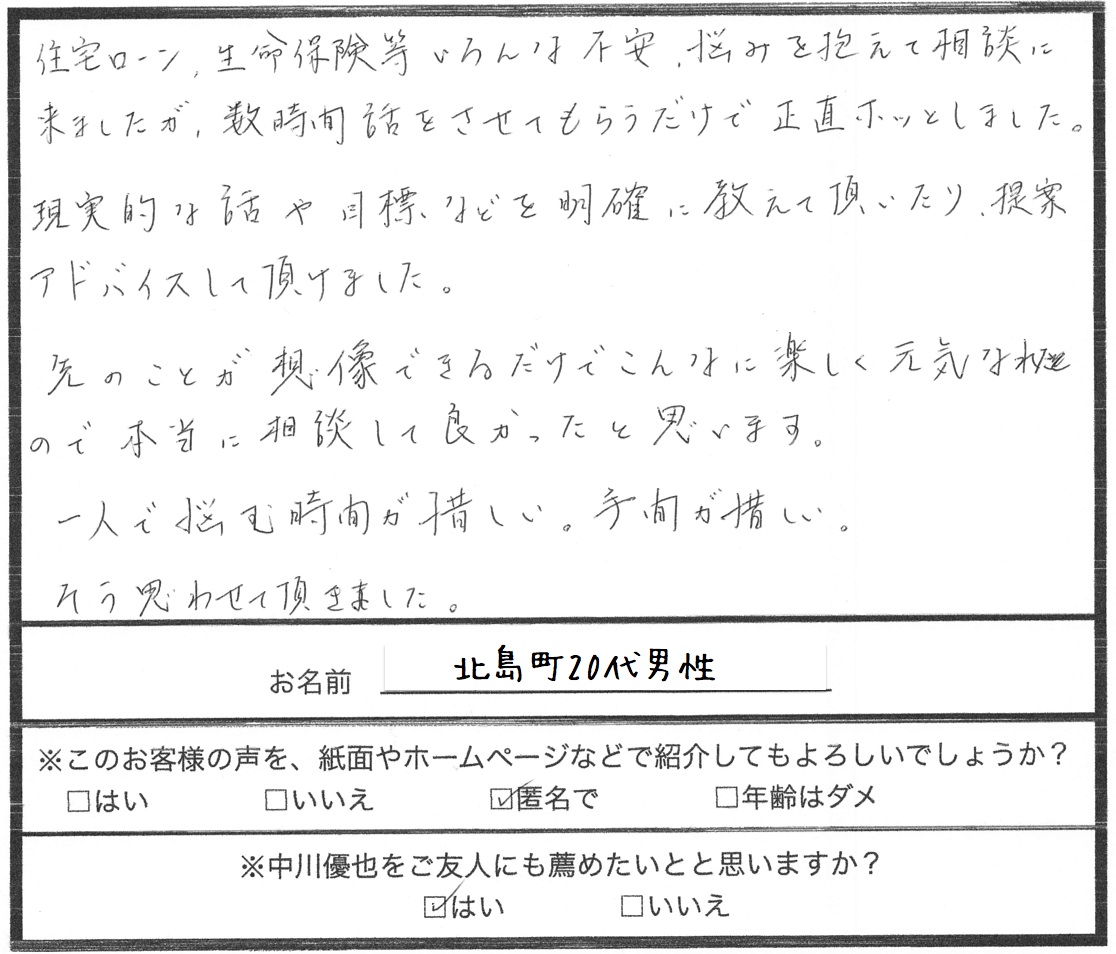 住宅ローン、生命保険等いろんな不安、悩みを抱えて相談に
来ましたが、数時間話をさせてもらうだけで正直ホッとしました。
現実的な話や目標、などを明確に教えて頂いたり、提案
アドバイスして頂けました。
先のことが想像できるだけでこんなに楽しく元気なれた
ので本当に相談して良かったと思います。
一人で悩む時間が惜しい。手間が惜しい。
そう思わせて頂きました。
お名前 北島町20代男性
※このお客様の声を、紙面やホームページなどで紹介してもよろしいでしょうか？
□はい □いいえ ☑匿名で □年齢はダメ
※中川優也をご友人にも薦めたいとと思いますか？
☑はい □いいえ